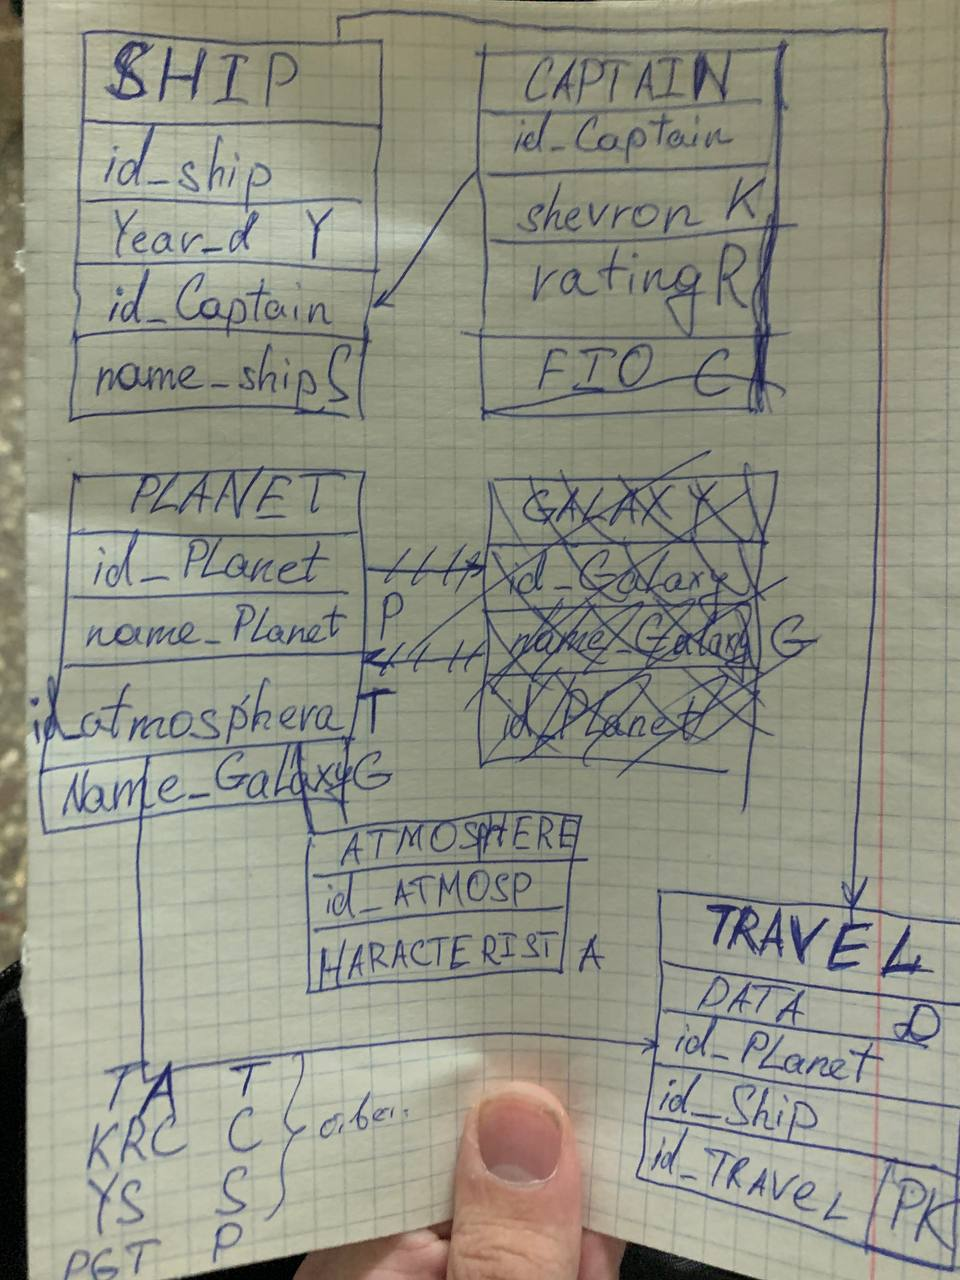 SHIP
id_ship
Year_d Y
id_Captain
name_ship S
CAPTAIN
id_Captain
shevron K
rating R
FIO C
PLANET
id_PLanet
name_PLanet P
id_atmosphera T
Name_Galaxy G
GALAXY
id_Galaxy
name_Galaxy G
id_PLanet
ATMOSPHERE
id_ATMOSP
HARACTERIST A
TRAVEL
DATA D
id_PLanet
id_Ship
id_TRAVEL PK
TA T
KRC C
YS S
PGT P